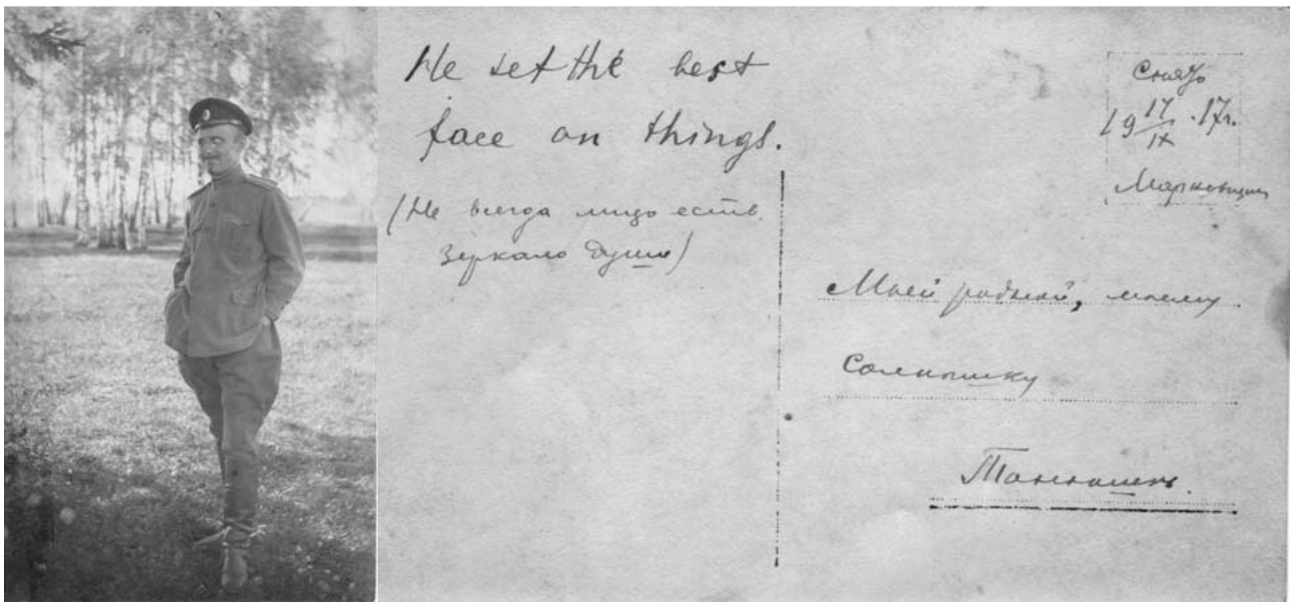 He set the best
face on things.
(Не всегда лицо есть
зеркало души)
Снято
19 17/IX .17г.
Марковщина
Моей родной, моему
солнышку